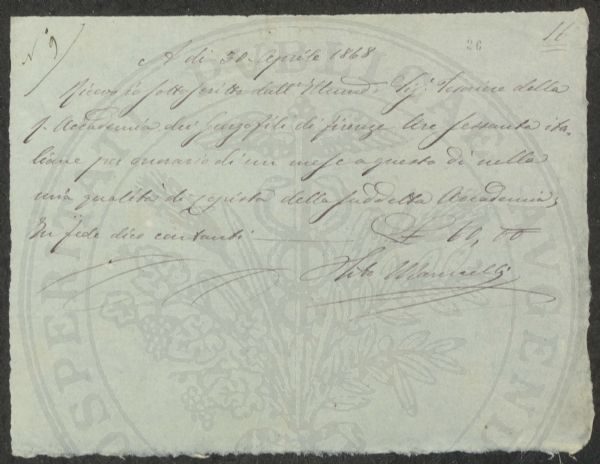 N° 9
26
16
A dì 30 Aprile 1868
Ricevo io sottoscritto dall' Illmo. Sig: Tesoriere della
R. Accademia dei Georgofili di Firenze lire sessanta ita-
liane per onorario di un mese a questo dì nella
mia qualità di copista della suddetta Accademia,
In fede dico contanti £ 60, 00
PROSPERITATI PUBLICAE AUGENDAE